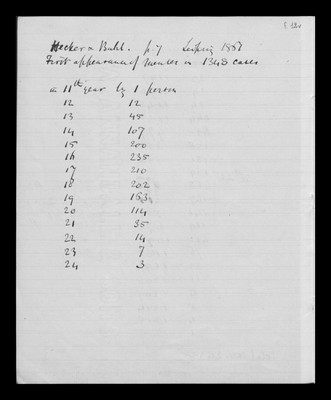 Hecker & Buhl. p.7 Leipzig
First appearance of menses in 1343 cases
in 11th year by 1 person
12 12
13 45
14 107
15 200
16 235
17 210
18 202
19 153
20 114
21 35
22 14
23 7
24 3